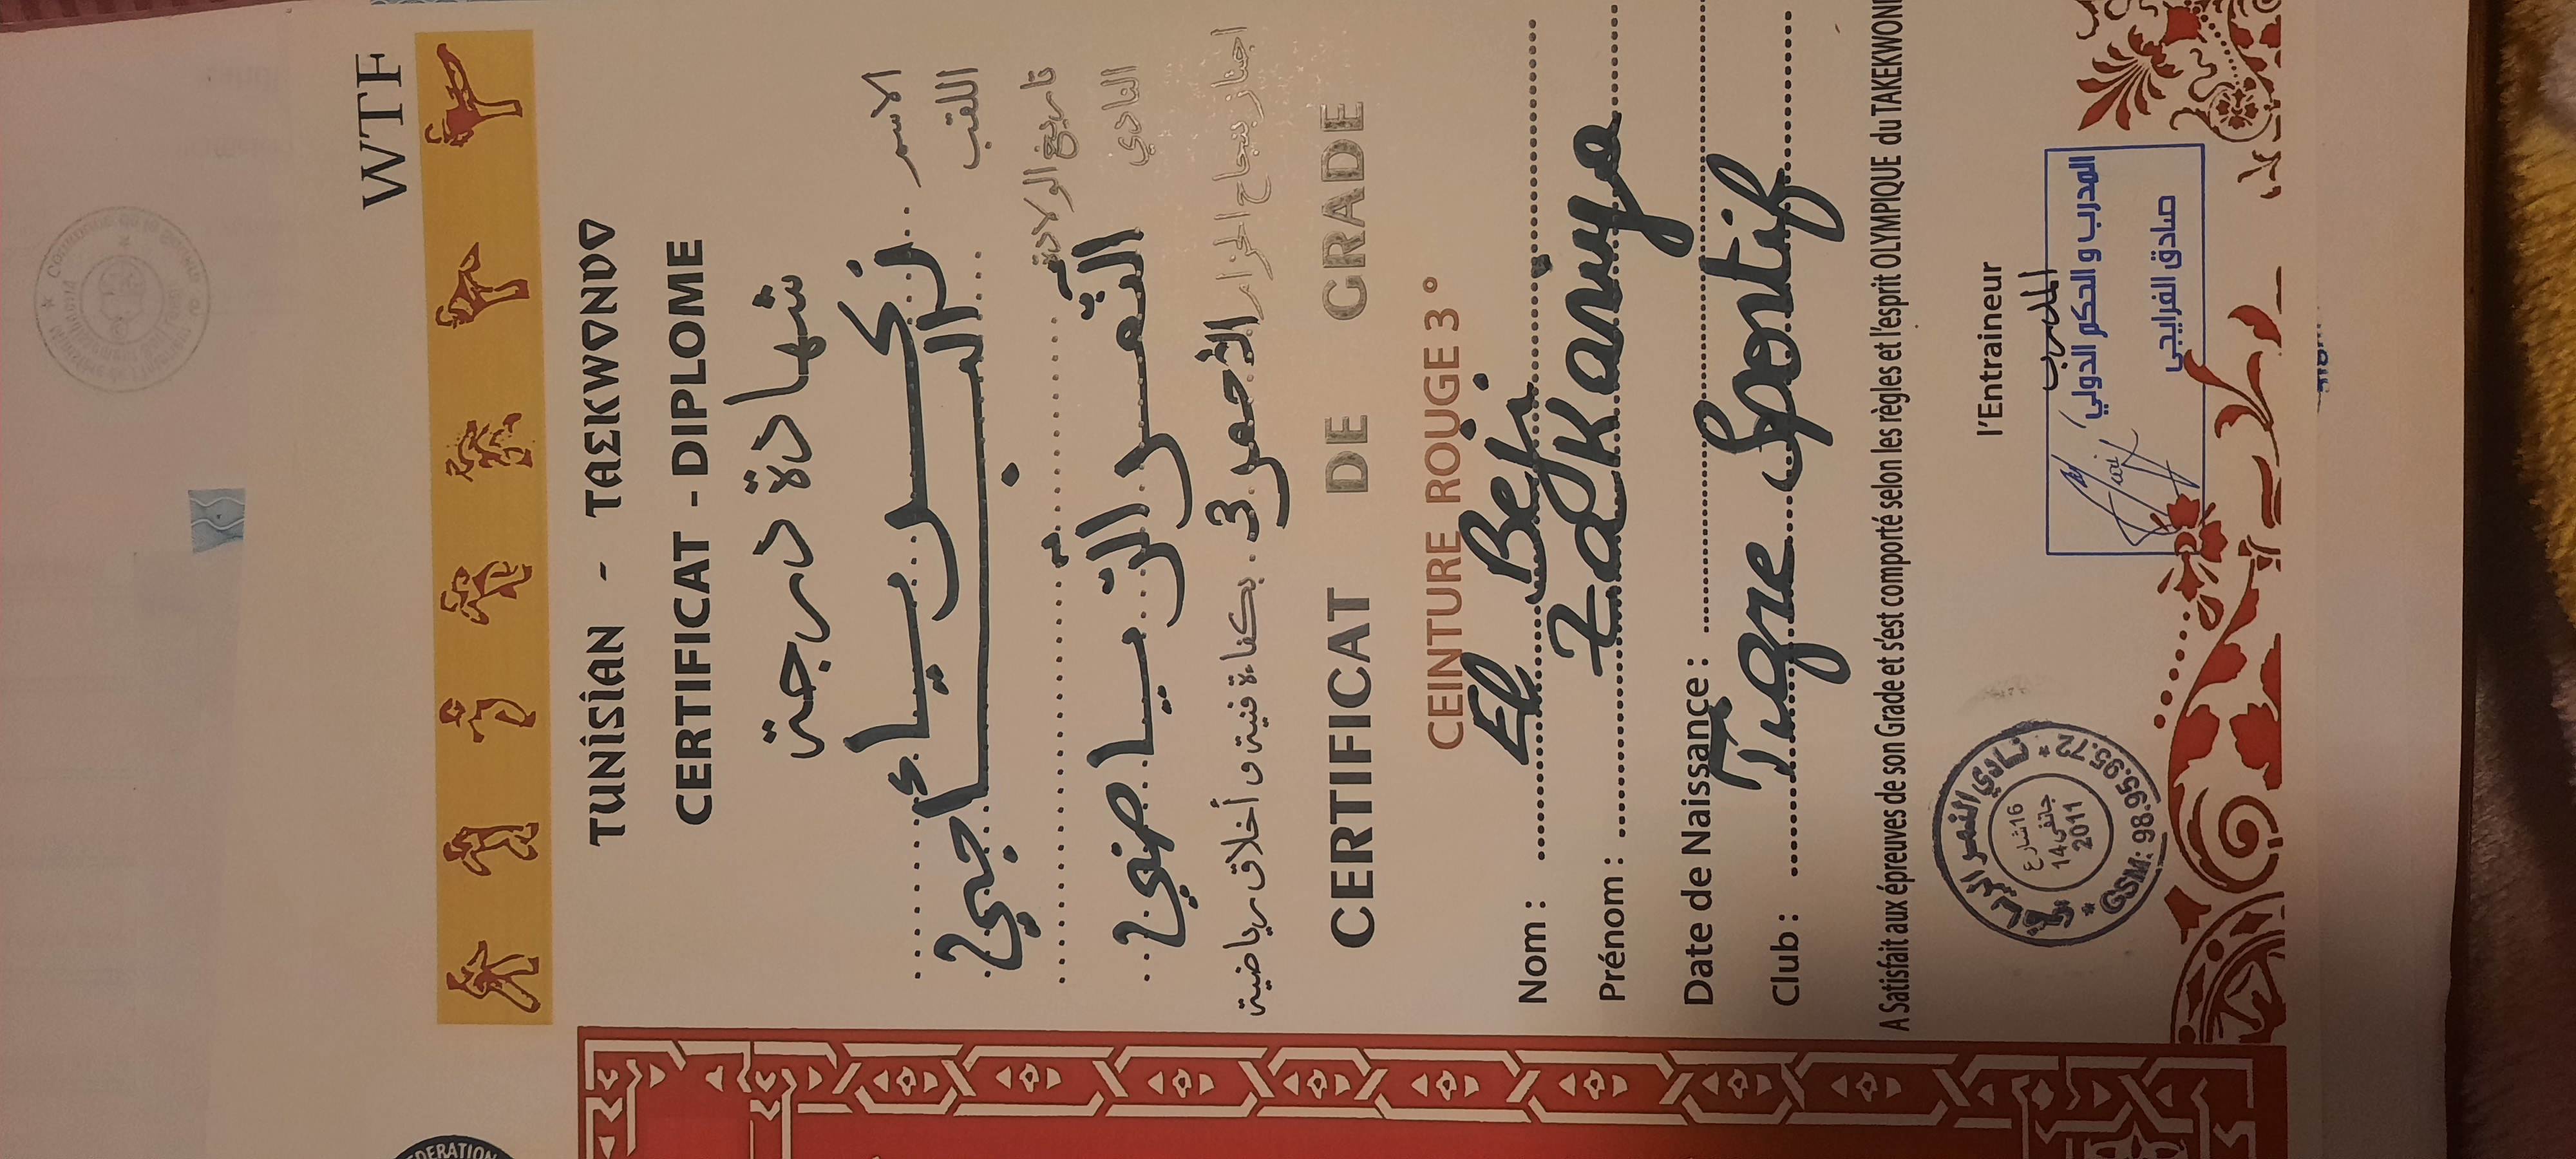 WTF
TUNISIAN - TAEKWONDO
CERTIFICAT - DIPLOME
شهادة درجة
الاسم زكرياء
اللقب الباجي
تاريخ الولادة
النادي النمر الرياضي
اجتاز بنجاح الحزام الأحمر 3 بكفاءة فنية و أخلاق رياضية
CERTIFICAT DE GRADE
CEINTURE ROUGE 3°
Nom : El Beji
Prénom : Zakariya
Date de Naissance :
Club : Tigre Sportif
A Satisfait aux épreuves de son Grade et s'est comporté selon les règles et l'esprit OLYMPIQUE du TAKEKWON
l'Entraineur
المدرب
المدرب و الحكم الدولي
صادق الفرايجي
16 شارع
14 جانفي
2011
GSM: 98.95.95.72